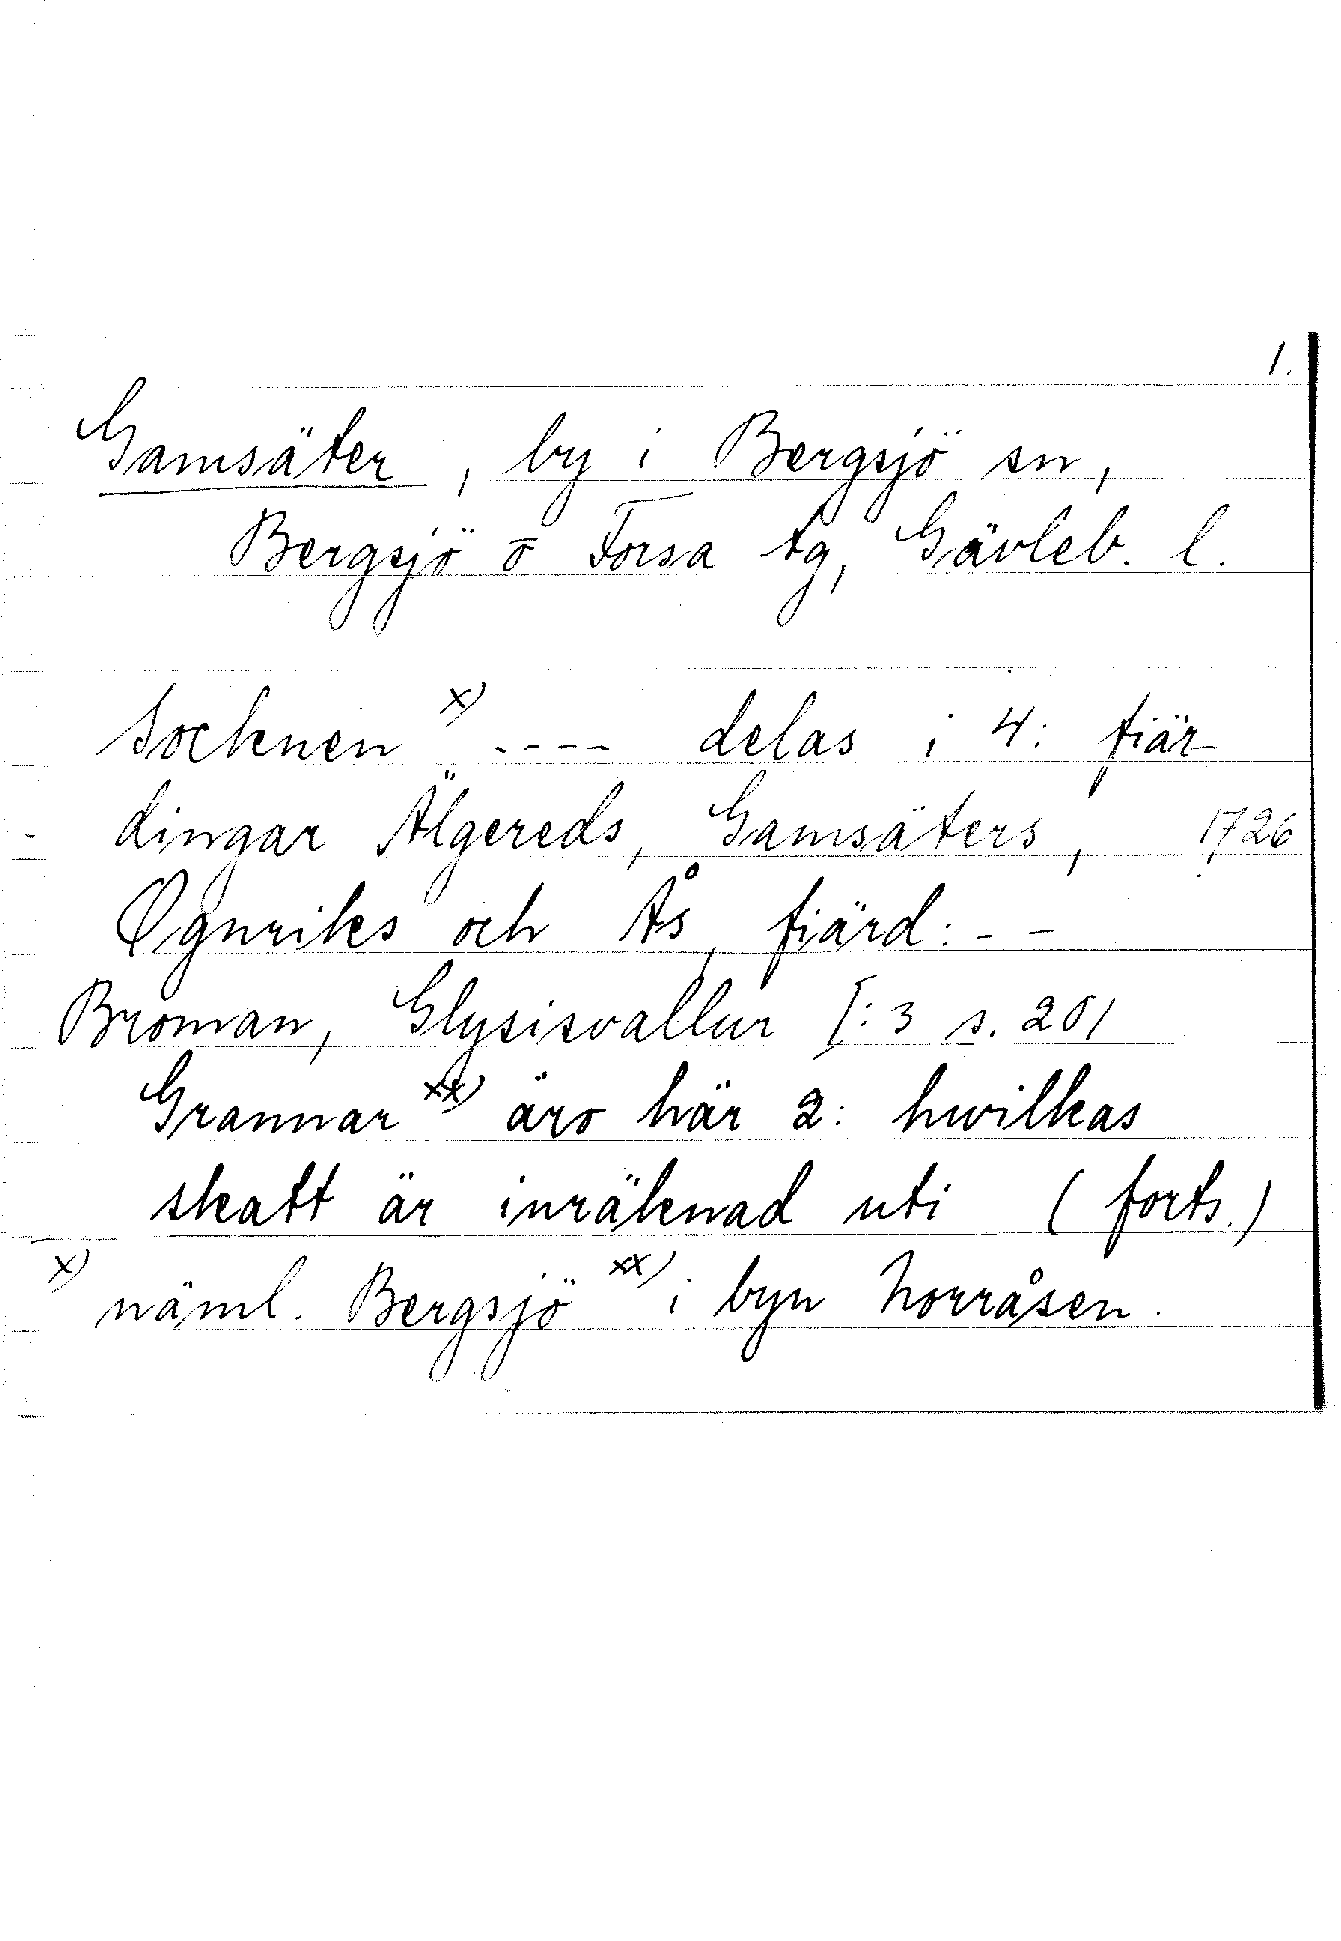 1.
Gamsäter, by i Bergsjö sn,
Bergsjö o Forsa tg, Gävleb. l.
Socknen x) ---- delas i 4: fiär-
dingar Älgereds, Gamsäters, 1726
Øgnriks och Ås, fiärd: - -
Broman, Glysisvallur I:3 s. 201
Grannar xx) äro här 2: hwilkas
skatt är inräknad uti (forts.)
x) näml. Bergsjö xx) i byn Norråsen.